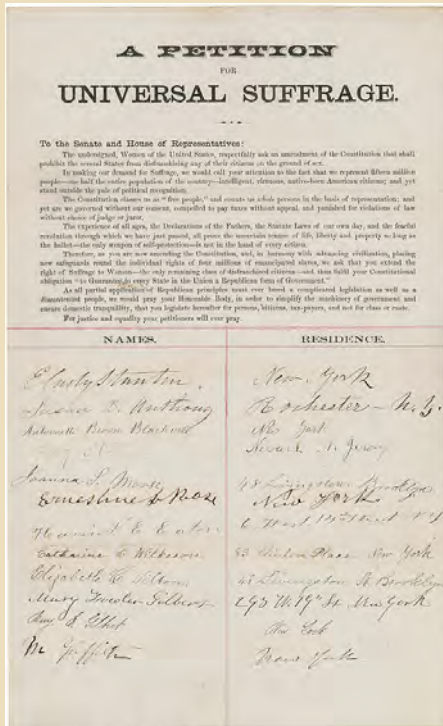 A PETITION
FOR
UNIVERSAL SUFFRAGE.
To the Senate and House of Representatives:
The undersigned, Women of the United States, respectfully ask an amendment of the Constitution that shall
prohibit the several States from disfranchising any of their citizens on the ground of sex.
In making our demand for Suffrage, we would call your attention to the fact that we represent fifteen million
people—one half the entire population of the country—intelligent, virtuous, native-born American citizens; and yet
stand outside the pale of political recognition.
The Constitution classes us as "free people," and counts us whole persons in the basis of representation; and
yet are we governed without our consent, compelled to pay taxes without appeal, and punished for violations of law
without choice of judge or juror.
The experience of all ages, the Declarations of the Fathers, the Statute Laws of our own day, and the fearful
revolution through which we have just passed, all prove the uncertain tenure of life, liberty and property so long as
the ballot—the only weapon of self-protection—is not in the hand of every citizen.
Therefore, as you are now amending the Constitution, and, in harmony with advancing civilization, placing
new safeguards round the individual rights of four millions of emancipated slaves, we ask that you extend the
right of Suffrage to Woman—the only remaining class of disfranchised citizens—and thus fulfil your Constitutional
obligation "to Guarantee to every State in the Union a Republican form of Government."
As all partial application of Republican principles must ever breed a complicated legislation as well as a
discontented people, we would pray your Honorable Body, in order to simplify the machinery of government and
ensure domestic tranquility, that you legislate hereafter for persons, citizens, tax-payers, and not for class or caste.
For justice and equality your petitioners will ever pray.
NAMES. RESIDENCE.
E Cady Stanton. New York
Susan B. Anthony Rochester - N. Y.
Antoinette Brown Blackwell New York
Newark N. Jersey
Joanna S. Morse 48 Livingston Brooklyn
Ernestine L Rose New York
Harriet E Eaton 6 West 14th Street N Y
Catharine C Wilkeson 83 Clinton Place New York
Elizabeth R Tilton 48 Livingston St. Brooklyn
Mary Fowler Gilbert 293 W. 19th St New York
Gilbert New York
M Griffith New York